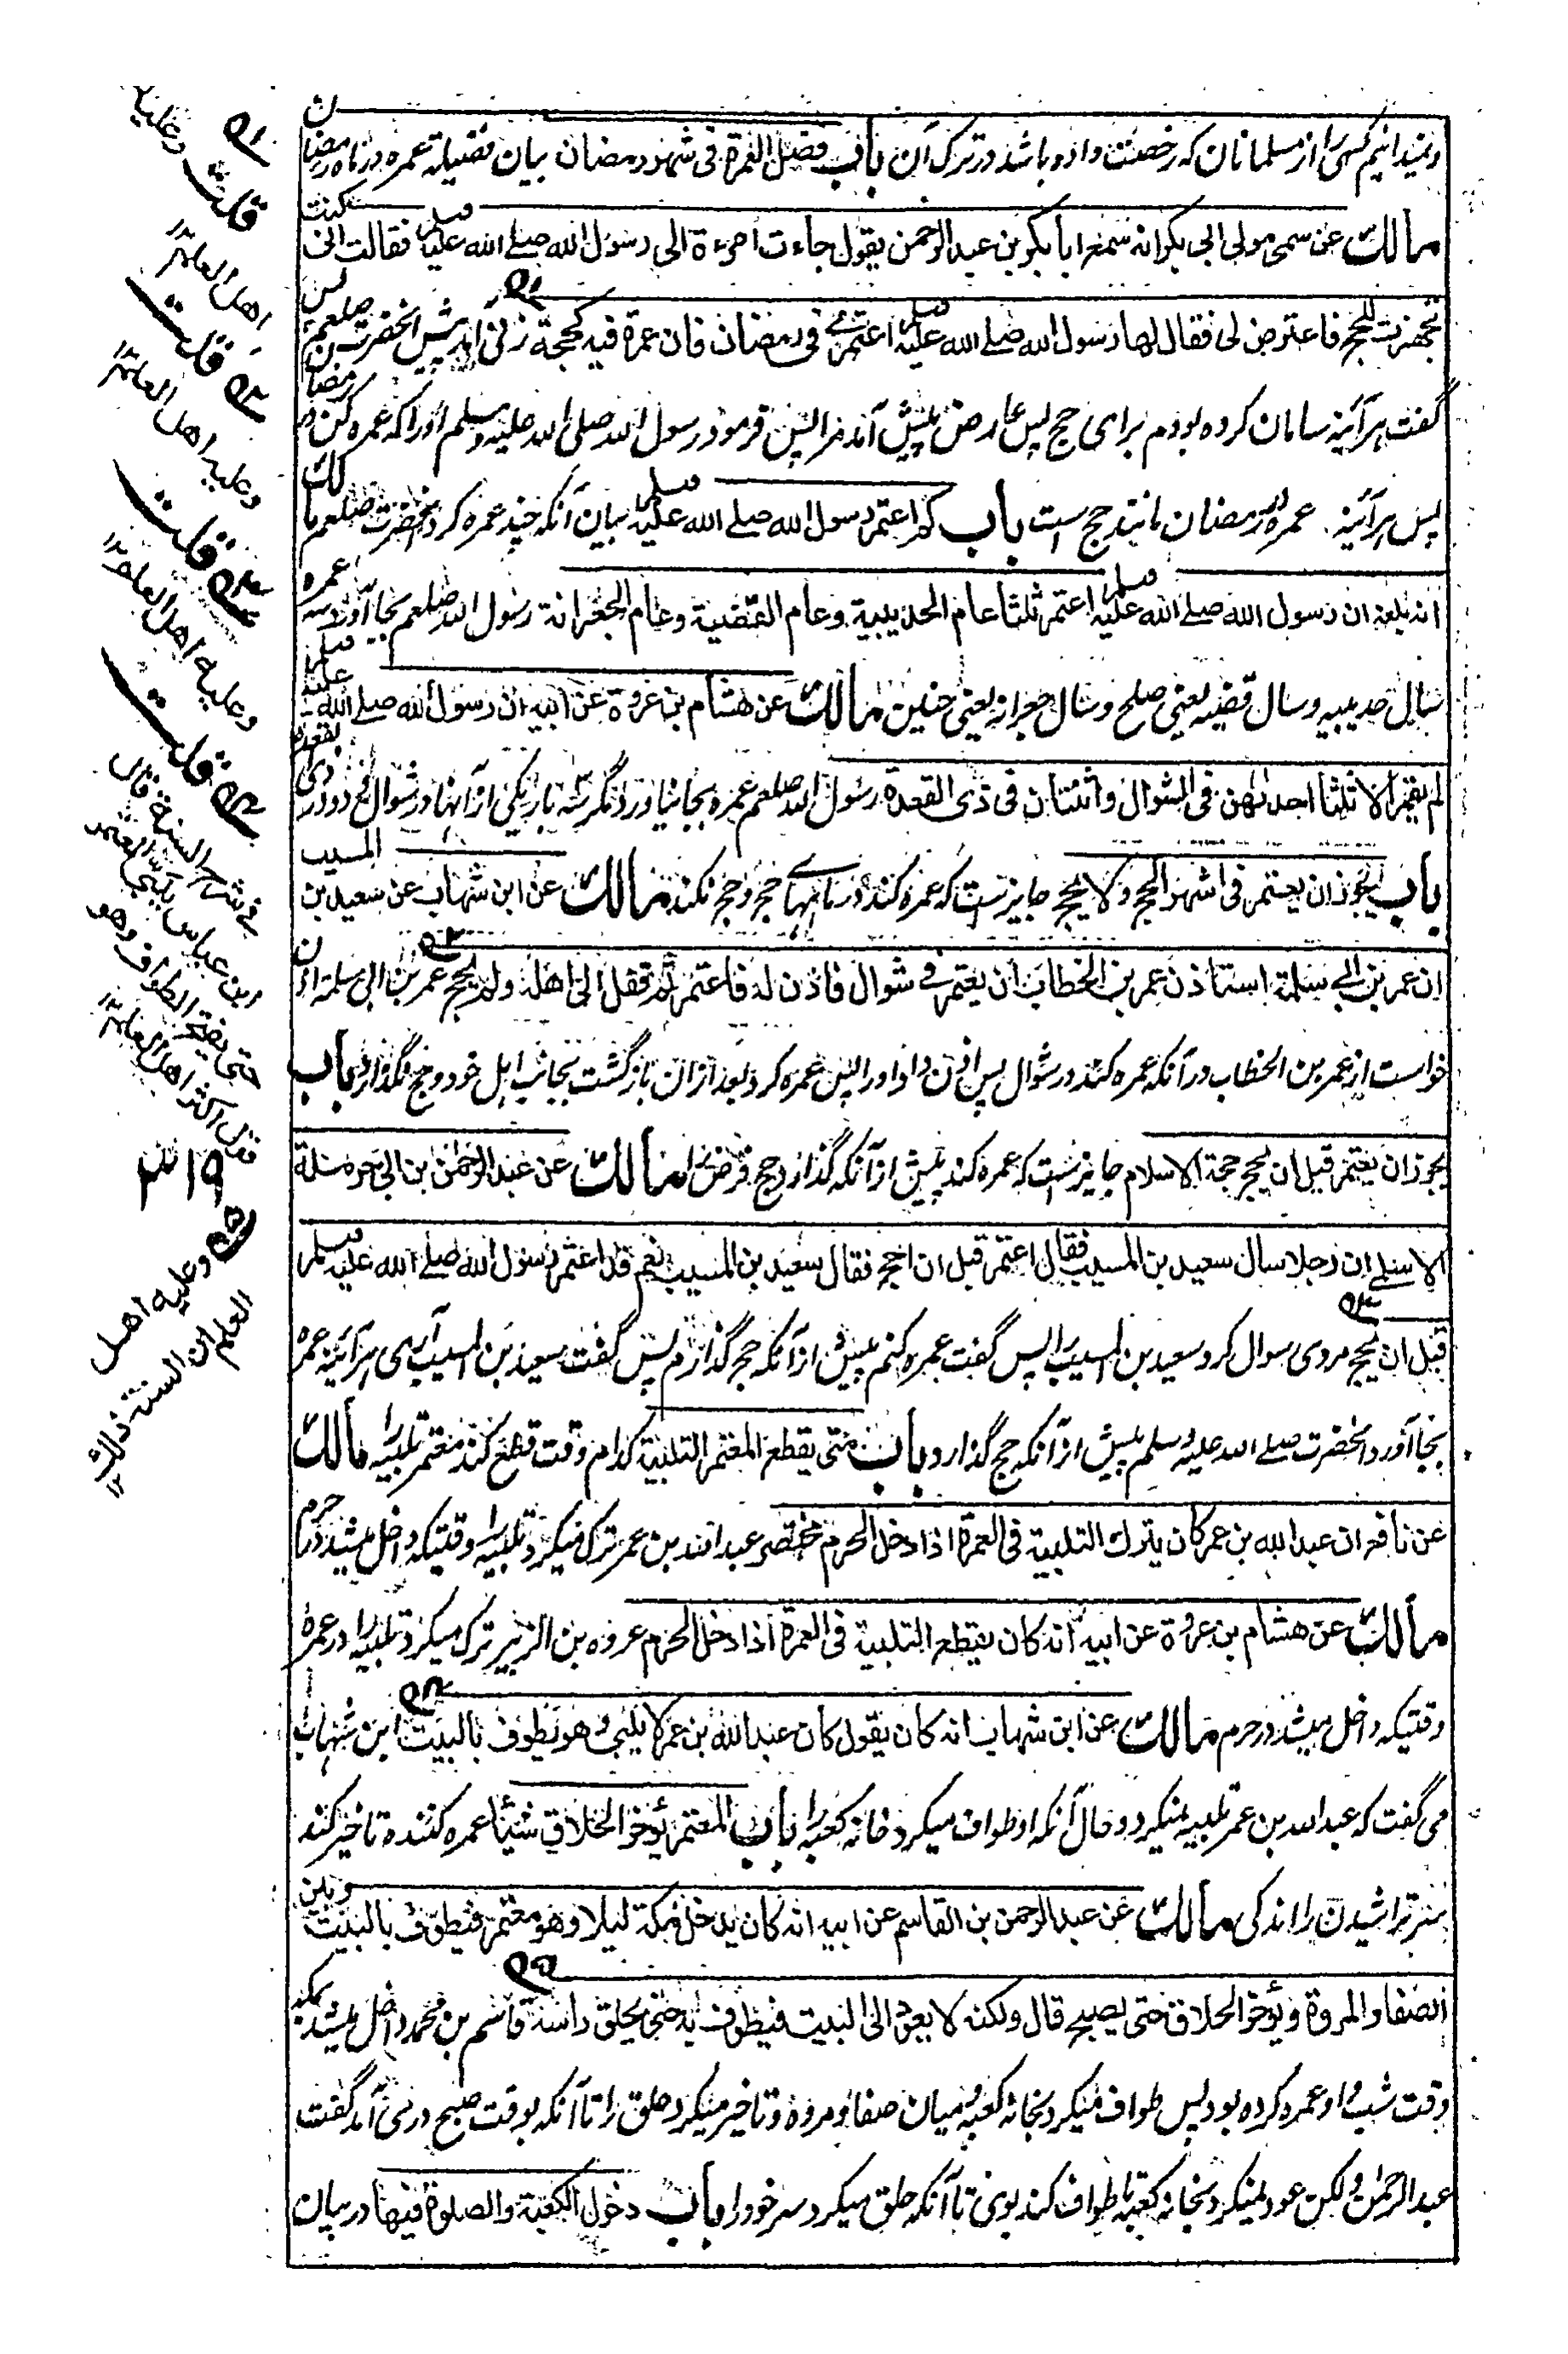 و نمیدانیم کسی را از مسلمانان که رخصت داده باشد در ترک آن باب فضل العمرة فی شهر رمضان بیان فضیلة عمره در ماه رمضان
مالك عن سمی مولی ابی بکر انه سمع ابا بکر بن عبد الرحمن یقول جاءت امرءة الی رسول الله صلے الله علیه وسلم فقالت انی کنت
تجهزت للحج فاعترض لی فقال لها رسول الله صلے الله علیه وسلم اعتمری فی رمضان فان عمرة فیه کحجة زنی آمد پیش آنحضرت صلعم پس
گفت هر آئینه سامان کرده بودم برای حج پس عارض پیش آمد مرا پس فرمود رسول الله صلی الله علیه وسلم او را که عمره کن در رمضان
پس هر آئینه عمره در رمضان مانند حج ست باب کم اعتمر رسول الله صلے الله علیه وسلم بیان آنکه چند عمره کرد آنحضرت صلعم مالك
انه بلغه ان رسول الله صلے الله علیه وسلم اعتمر ثلثا عام الحدیبیة وعام القضیة وعام الجعرانة رسول الله صلعم بجا آورد سه عمره
سال حدیبیه و سال قضیه یعنی صلح و سال جعرانه یعنی حنین مالك عن هشام بن عروة عن ابیه ان رسول الله صلے الله علیه وسلم
لم یعتمر الا ثلثا احدٰهن فی الشوال واثنتان فی ذی القعدة رسول الله صلعم عمره بجا نیاورد مگر سه بار یکی از آنها در شوال و دو در ذی القعده
باب یجوز ان یعتمر فی اشهر الحج ولا یحج جایز ست که عمره کند در ماههاے حج و حج نکند مالك عن ابن شهاب عن سعید بن المسیب
ان عمر بن ابے سلمة استاذن عمر بن الخطاب ان یعتمر فے شوال فاذن له فاعتمر ثم قفل الی اهله ولم یحج عمر بن ابی سلمه اذن
خواست از عمر بن الخطاب در آنکه عمره کند در شوال پس اذن داد او را پس عمره کرد بعد از ان بازگشت بجانب اهل خود و حج نگذارد باب
یجوز ان یعتمر قبل ان یحج حجة الاسلام جایز ست که عمره کند پیش از آنکه گذارد حج فرض را مالك عن عبد الرحمٰن بن ابی حرملة
الاسلمے ان رجلا سال سعید بن المسیب فقال اعتمر قبل ان احج فقال سعید بن المسیب نعم قد اعتمر رسول الله صلے الله علیه وسلم
قبل ان یحج مردی سوال کرد سعید بن المسیب را پس گفت عمره کنم پیش از آنکه حج گذارم پس گفت سعید بن المسیب آری هر آئینه عمره
بجا آورد آنحضرت صلے الله علیه وسلم پیش از آنکه حج گذارد باب متی یقطع المعتمر التلبیة کدام وقت قطع کند معتمر تلبیه را مالك
عن نافع ان عبد الله بن عمر کان یترك التلبیة فی العمرة اذا دخل الحرم مختصر عبد الله بن عمر ترک میکرد تلبیه را وقتیکه داخل میشد در حرم
مالك عن هشام بن عروة عن ابیه انه کان یقطع التلبیة فی العمرة اذا دخل الحرم عروه بن الزبیر ترک میکرد تلبیه را در عمره
وقتیکه داخل میشد در حرم مالك عن ابن شهاب انه کان یقول کان عبد الله بن عمر لا یلبی وهو یطوف بالبیت ابن شهاب
می گفت که عبد الله بن عمر تلبیه نمیکرد و حال آنکه او طواف میکرد خانه کعبه را باب المعتمر یؤخر الحلاق شیئا عمره کننده تاخیر کند
سر تراشیدن را اندکی مالك عن عبد الرحمن بن القاسم عن ابیه انه کان یدخل مکة لیلا وهو معتمر فیطوف بالبیت وبین
الصفا والمروة ویؤخر الحلاق حتی یصبح قال ولکنه لا یعود الی البیت فیطوف به حتی یحلق راسه قاسم بن محمد داخل میشد بمکه
وقت شب و او عمره کرده بود پس طواف میکرد بخانه کعبه و میان صفا و مروه و تاخیر میکرد حلق را تا آنکه بوقت صبح در می آمد گفت
عبد الرحمٰن و لکن عود نمیکرد بخانه کعبه تا طواف کند بوی تا آنکه حلق میکرد سر خود را باب دخول الکعبة والصلوة فیها در بیان
قلت وعلیه
اهل العلم ۱۲
قلت
وعلیه اهل العلم ۱۲
قلت
وعلیه اهل العلم ۱۲
قلت
فی شرح السنة قال
ابن عباس یلبی المعتمر
حتی یفتتح الطواف وهو
قول اکثر اهل العلم ۱۲
وعلیه اهل
العلم ان السنة ذلك ۱۲